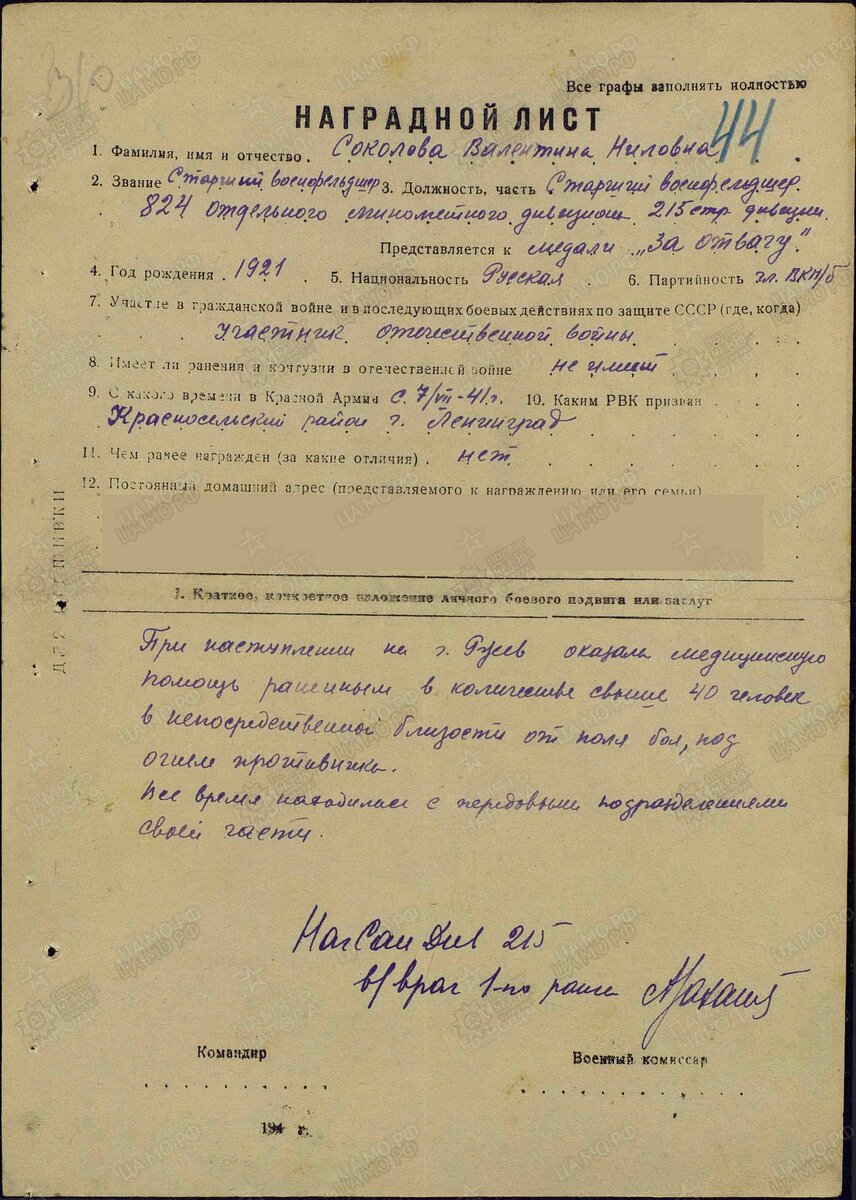 310
Все графы заполнять полностью
НАГРАДНОЙ ЛИСТ
44
1. Фамилия, имя и отчество. Соколова Валентина Ниловна
2. Звание Старший военфельдшер 3. Должность, часть Старший военфельдшер
824 отдельного минометного дивизиона 215 стр. дивизии.
Представляется к медали „За отвагу".
4. Год рождения. 1921. 5. Национальность Русская. 6. Партийность чл. ВКП/б
7. Участие в гражданской войне и в последующих боевых действиях по защите СССР (где, когда)
участник отечественной войны.
8. Имеет ли ранения и контузии в отечественной войне не имеет
9. С какого времени в Красной Армии с 7/VII-41г. 10. Каким РВК призван
Красносельский район г. Ленинград
11. Чем ранее награжден (за какие отличия). нет
12. Постоянный домашний адрес (представляемого к награждению или его семьи)
1. Краткое, конкретное изложение личного боевого подвига или заслуг
При наступлении на г. Ржев оказала медицинскую
помощь раненным в количестве свыше 40 человек
в непосредственной близости от поля боя, под
огнем противника.
Все время находилась с передовыми подразделениями
своей части.
НачСанДив 215
в/врач 1-го ранга
Командир
Военный комиссар
194 г.